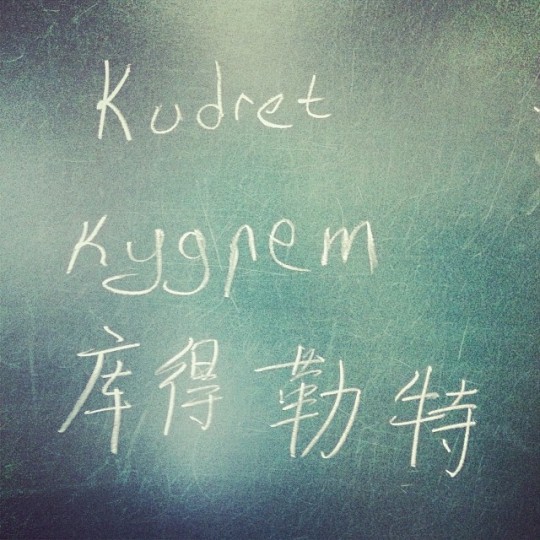 Kudret
Кудрет
库得勒特